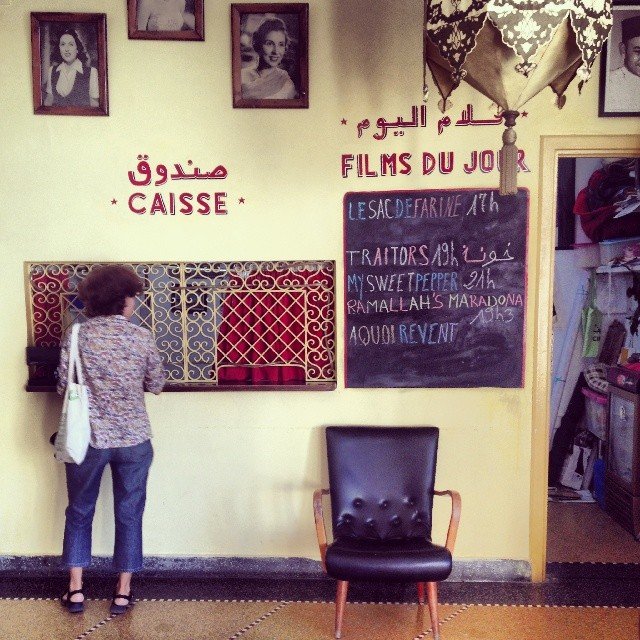 صندوق
CAISSE
أفلام اليوم
FILMS DU JOUR
LE SAC DE FARINE 17h
TRAITORS 19h خونة
MY SWEET PEPPER 21h
RAMALLAH'S MARADONA
19h3
A QUOI REVENT